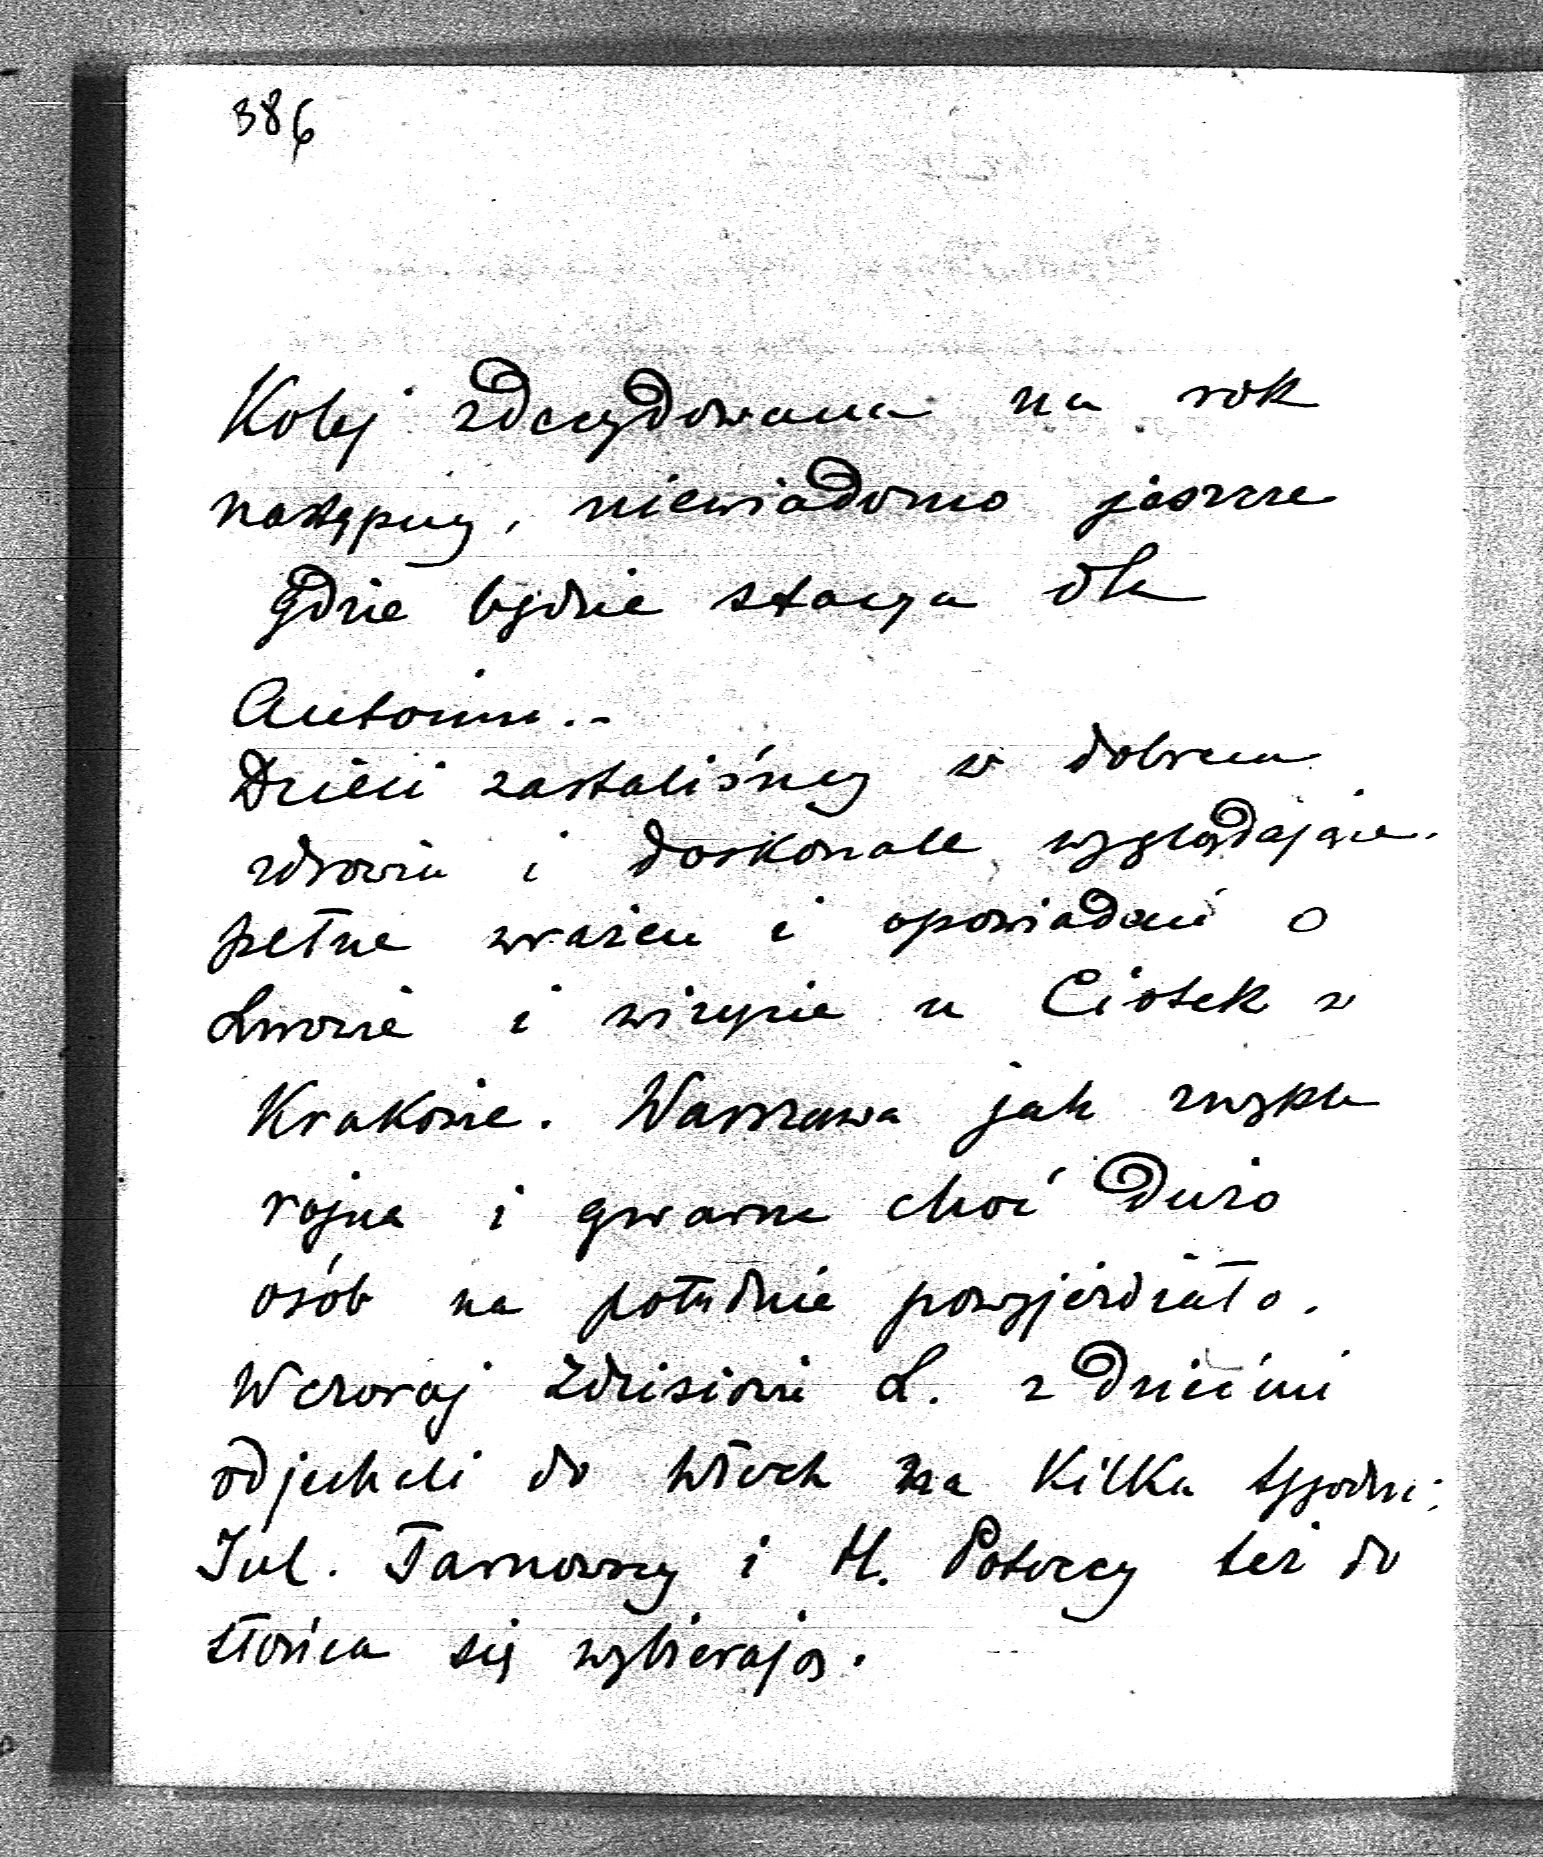 386
Kolej zdecydowana na rok
następny, niewiadomo jeszcze
gdzie będzie stacya dla
Antonin.-
Dzieci zastaliśmy w dobrem
zdrowiu i doskonale wyglądające.
pełne wrażeń i opowiadań o
Lwowie i wizycie u Ciotek w
Krakowie. Warszawa jak zwykle
rojna i gwarna choć dużo
osób na południe powyjeżdżało.
Wczoraj Zdzisiowie L. z dziećmi
odjechali do Włoch na kilka tygodni;
Jul. Tarnowscy i H. Potoccy też do
słońca się wybierają.